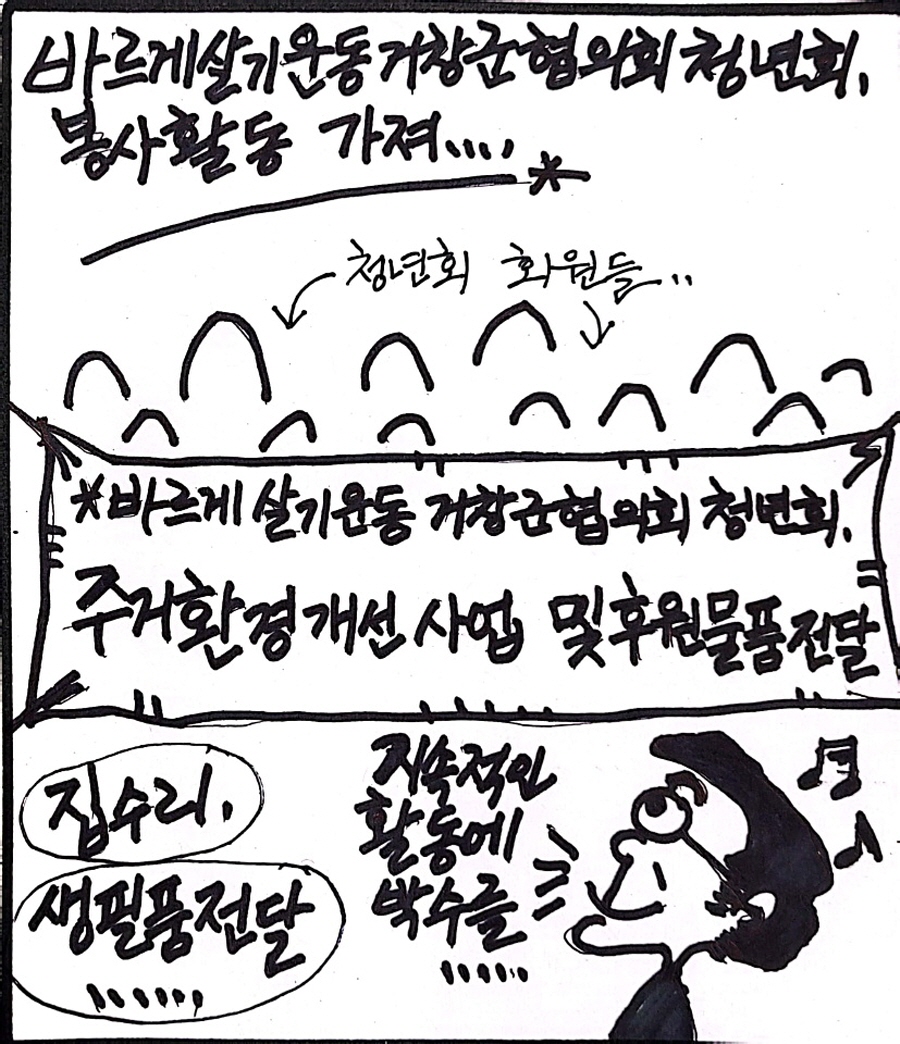 바르게살기운동거창군협의회 청년회,
봉사활동 가져....
청년회 회원들..
*바르게살기운동 거창군협의회 청년회.
주거환경개선사업 및 후원물품전달
집수리.
생필품전달
......
지속적인
활동에
박수를
.....